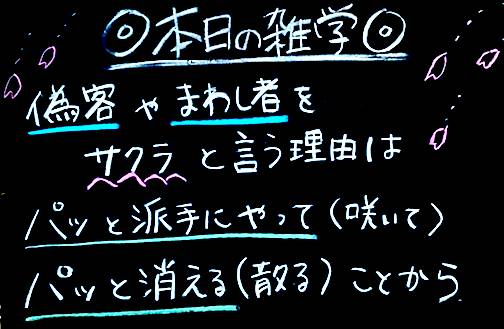 ◎本日の雑学◎
偽客やまわし者を
サクラと言う理由は
パッと派手にやって(咲いて)
パッと消える(散る)ことから